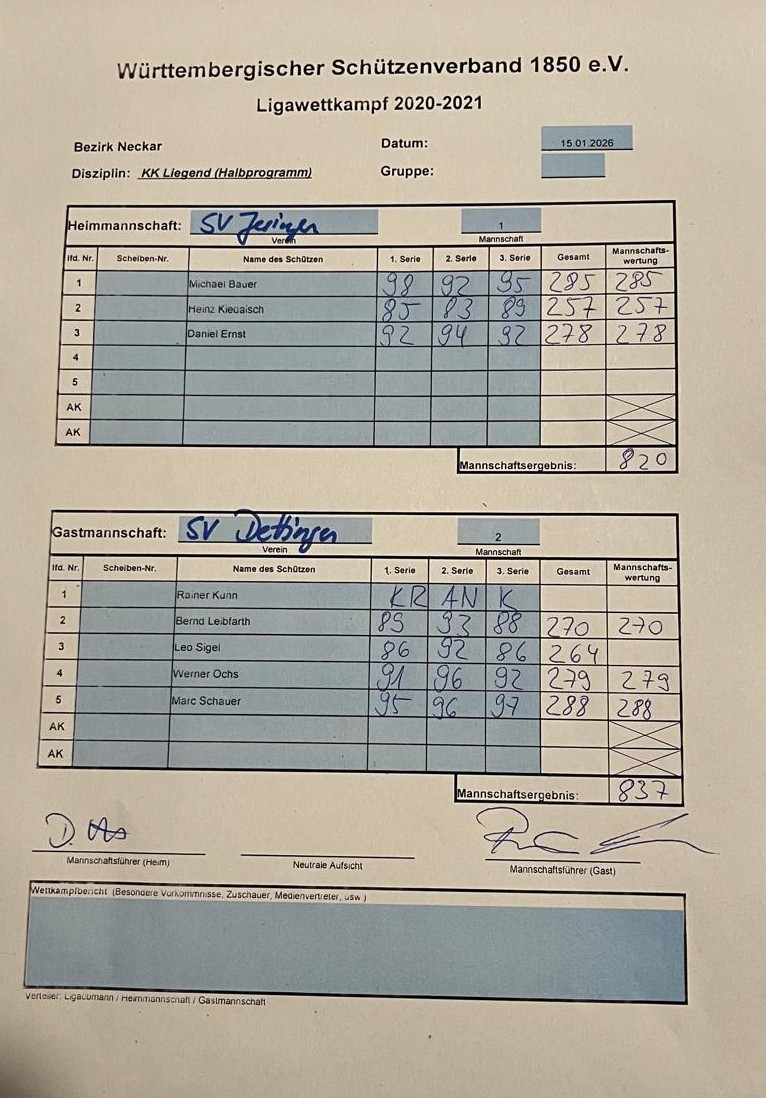 Württembergischer Schützenverband 1850 e.V.
Ligawettkampf 2020-2021
Bezirk Neckar Datum: 15.01.2026
Disziplin: KK Liegend (Halbprogramm) Gruppe:
Heimmannschaft: SV 1
Verein Mannschaft
lfd. Nr. Scheiben-Nr. Name des Schützen 1. Serie 2. Serie 3. Serie Gesamt Mannschafts-wertung
1 Michael Bauer 98 92 95 285 285
2 Heinz 85 83 89 257 257
3 Daniel Ernst 92 94 92 278 278
4
5
AK
AK
Mannschaftsergebnis: 820
Gastmannschaft: SV Dettingen 2
Verein Mannschaft
lfd. Nr. Scheiben-Nr. Name des Schützen 1. Serie 2. Serie 3. Serie Gesamt Mannschafts-wertung
1 Rainer Kunn KRANK
2 Bernd Leibfarth 89 93 88 270 270
3 Leo Sigel 86 92 86 264
4 Werner Ochs 91 96 92 279 279
5 Marc Schauer 95 96 97 288 288
AK
AK
Mannschaftsergebnis: 837
Mannschaftsführer (Heim) Neutrale Aufsicht Mannschaftsführer (Gast)
Wettkampfbericht (Besondere Vorkommnisse, Zuschauer, Medienvertreter, usw.)
Verteiler: Ligaobmann / Heimmannschaft / Gastmannschaft